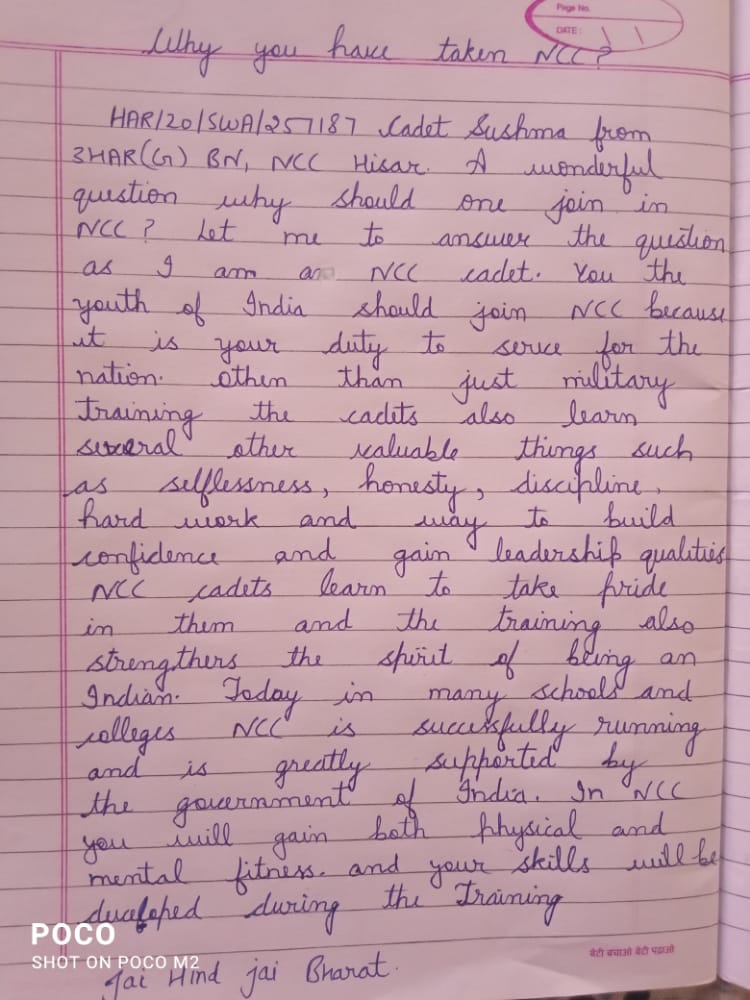 Page No.
DATE :
Why you have taken NCC?
HAR/20/SWA/257187 Cadet Sushma from
3HAR(G) BN, NCC Hisar. A wonderful
question why should one join in
NCC? Let me to answer the question
as I am an NCC cadet. You the
youth of India should join NCC because
it is your duty to serve for the
nation. othen than just military
training the cadits also learn
several other valuable things such
as selflessness, honesty, discipline,
hard work and way to build
confidence and gain leadership qualities
NCC cadets learn to take pride
in them and the training also
strengthers the spirit of being an
Indian. Today in many schools and
colleges NCC is successfully running
and is greatly supported by
the government of India. In NCC
you will gain both physical and
mental fitness. and your skills will be
during the Training
बेटी बचाओ बेटी पढ़ाओ
Jai Hind jai Bharat.
POCO
SHOT ON POCO M2